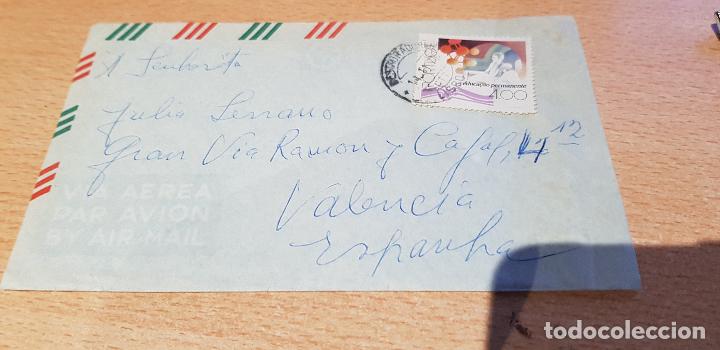 À Senhorita
Julia Serrano
Gran Via Ramon y Cajal, 12
Valencia
Espanha
educação permanente
4.00
VIA AEREA
PAR AVION
BY AIR-MAIL
todocoleccion